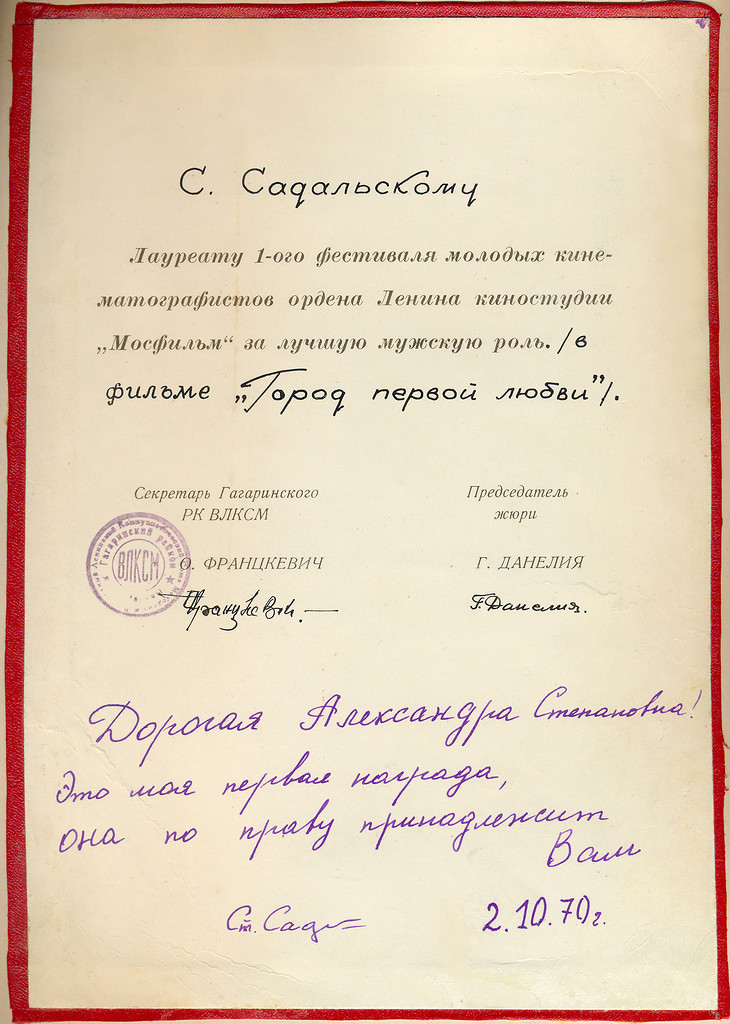 С. Садальскому
Лауреату 1-ого фестиваля молодых кине-
матографистов ордена Ленина киностудии
„Мосфильм“ за лучшую мужскую роль. /в
фильме „Город первой любви”/.
Секретарь Гагаринского
РК ВЛКСМ
Председатель
жюри
Гагаринский райком
ВЛКСМ
О. ФРАНЦКЕВИЧ
Г. ДАНЕЛИЯ
Г. Данелия.
Дорогая Александра Степановна!
Это моя первая награда,
она по праву принадлежит
Вам
Ст. Сад
2.10.70г.